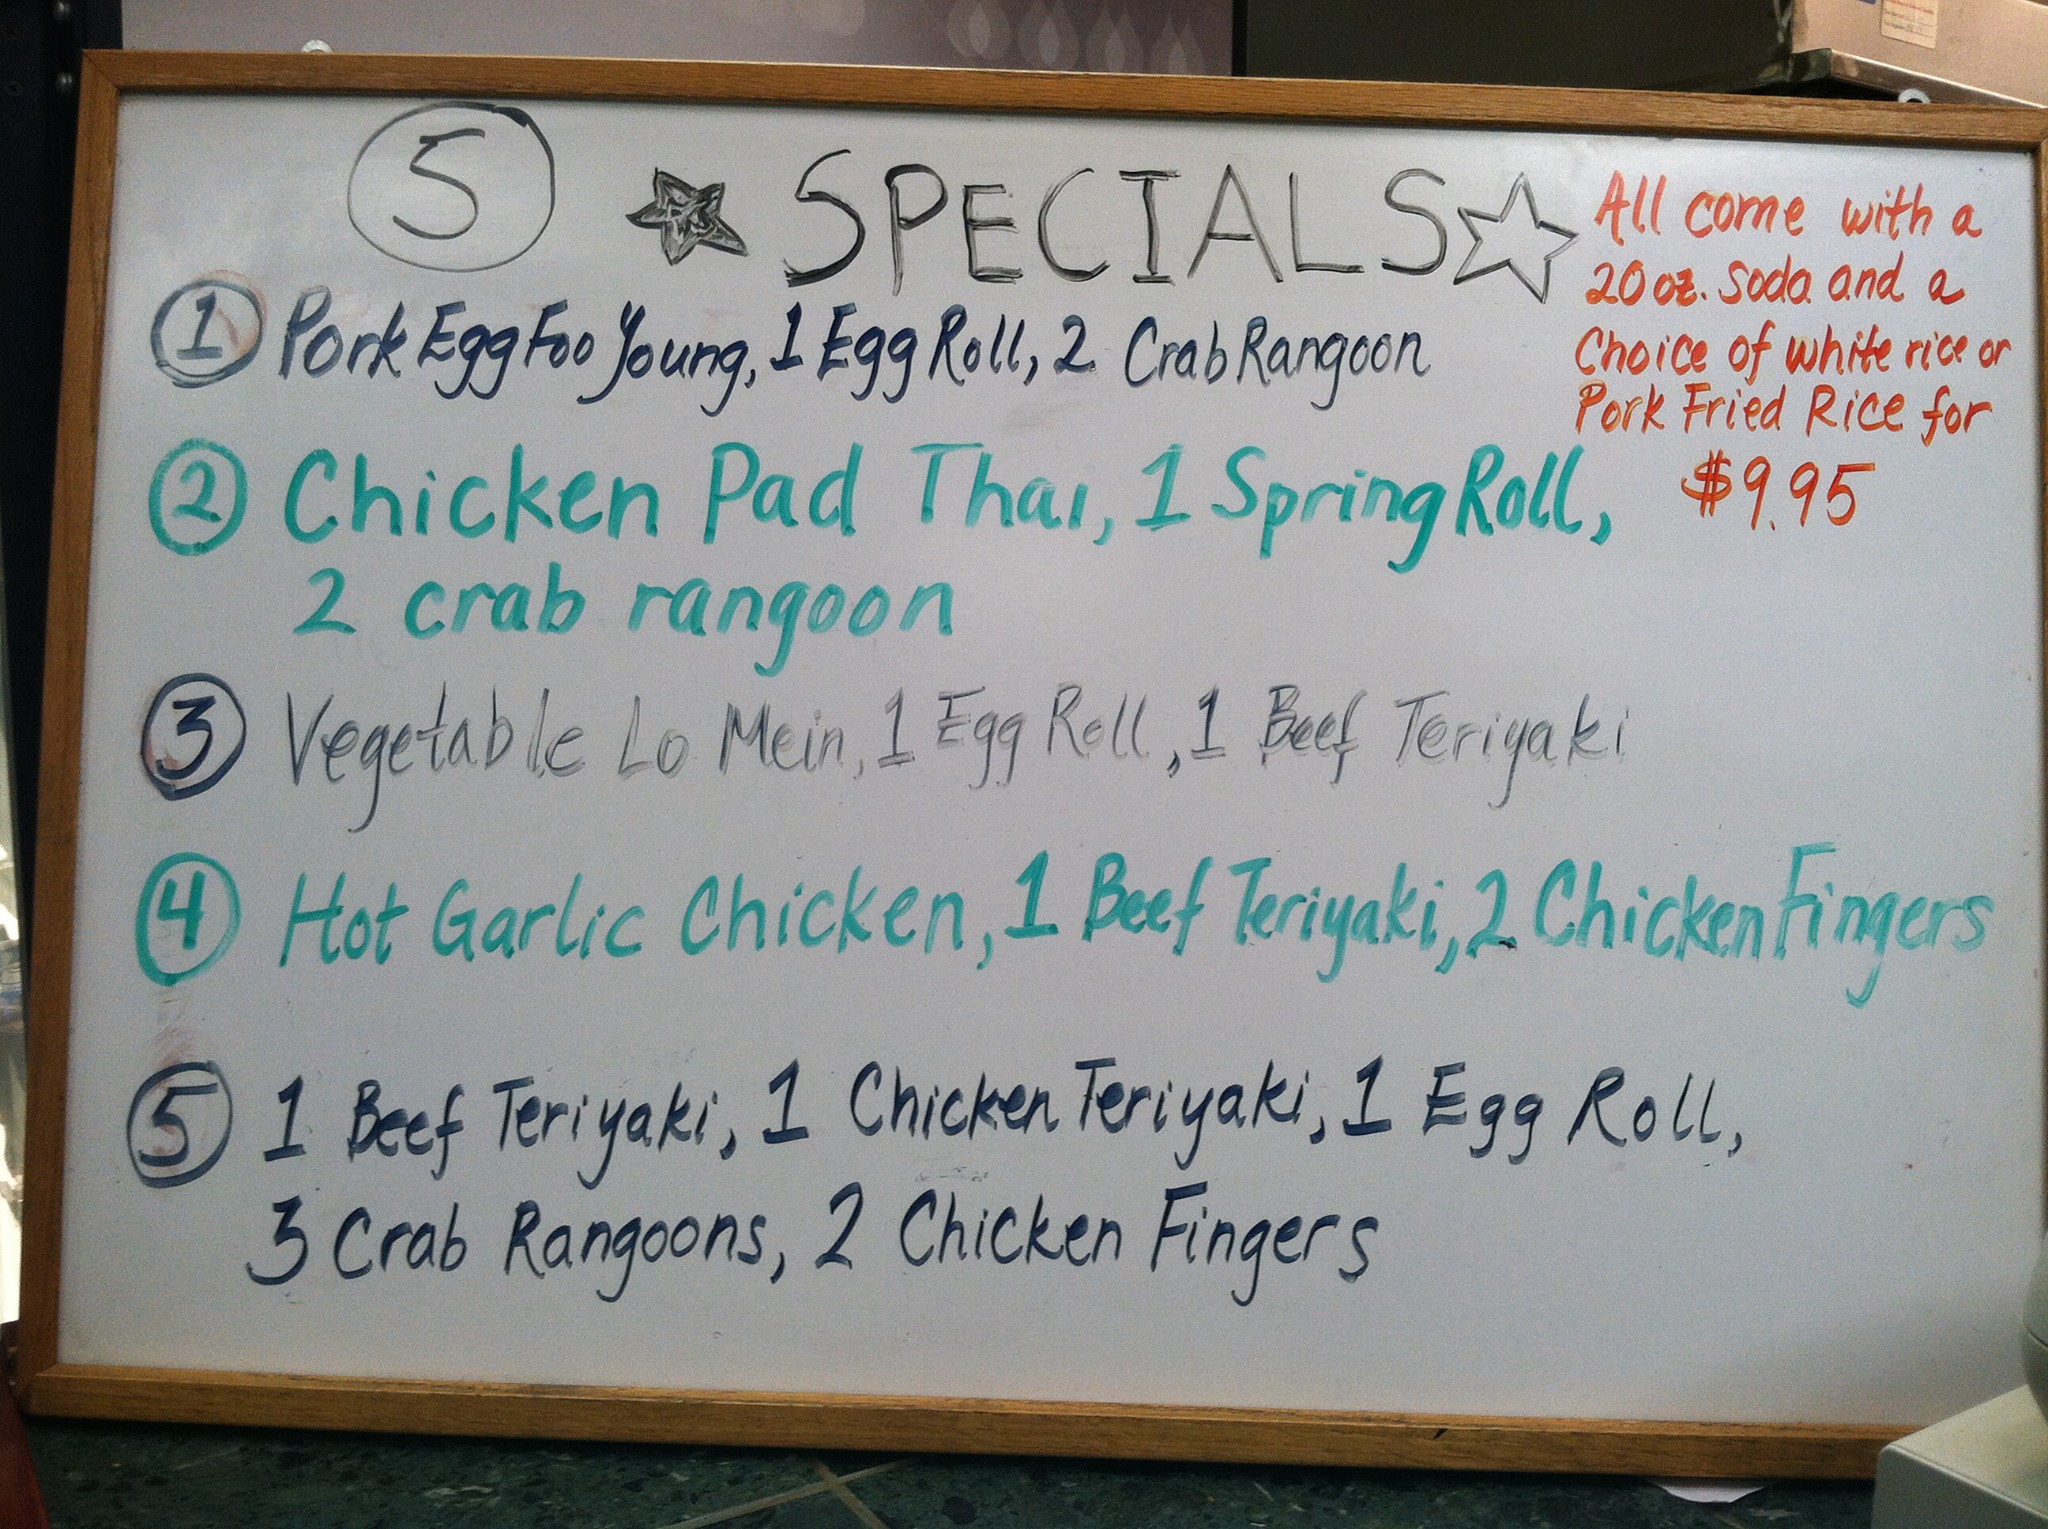 5 SPECIALS
All come with a
20 oz. Soda and a
Choice of white rice or
Pork Fried Rice for
$9.95
1 Pork Egg Foo Young, 1 Egg Roll, 2 Crab Rangoon
2 Chicken Pad Thai, 1 Spring Roll,
2 crab rangoon
3 Vegetable Lo Mein, 1 Egg Roll, 1 Beef Teriyaki
4 Hot Garlic Chicken, 1 Beef Teriyaki, 2 Chicken Fingers
5 1 Beef Teriyaki, 1 Chicken Teriyaki, 1 Egg Roll,
3 Crab Rangoons, 2 Chicken Fingers